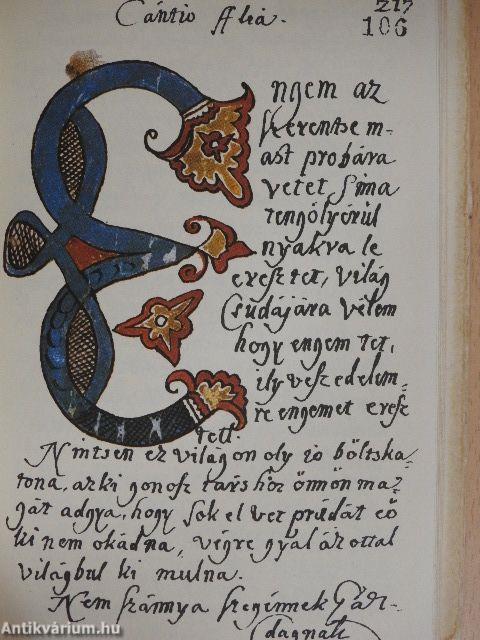 Cántio Alia.
217
106
Engem az
szerentse m-
ast probára
vetet sima
tengölyérül
nyakra le
eresztet, világ
Csudájára velem
hogy engem tet,
ily veszedelem-
re engemet eresz
tett.
Nintsen ez világon oly io böltska-
tona, azki gonosz társhoz önnön ma-
gát adgya, hogy sok el vet prédát eö
ki nem okádna, végre gyalázattal
világbul ki mulna.
Nem szánnya szegénnek Gár-
dagnak
Antikvárium.hu